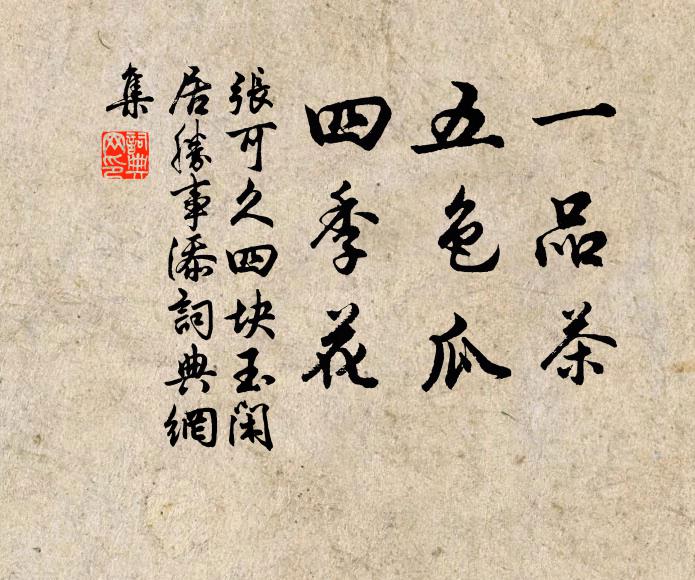 一品茶
五色瓜
四季花
張可久四块玉閑
居勝事添詞典網
集
詞典
网印